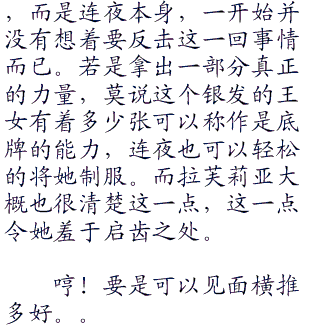 ，而是连夜本身，一开始并
没有想着要反击这一回事情
而已。若是拿出一部分真正
的力量，莫说这个银发的王
女有着多少张可以称作是底
牌的能力，连夜也可以轻松
的将她制服。而拉芙莉亚大
概也很清楚这一点，这一点
令她羞于启齿之处。
哼！要是可以见面横推
多好。。